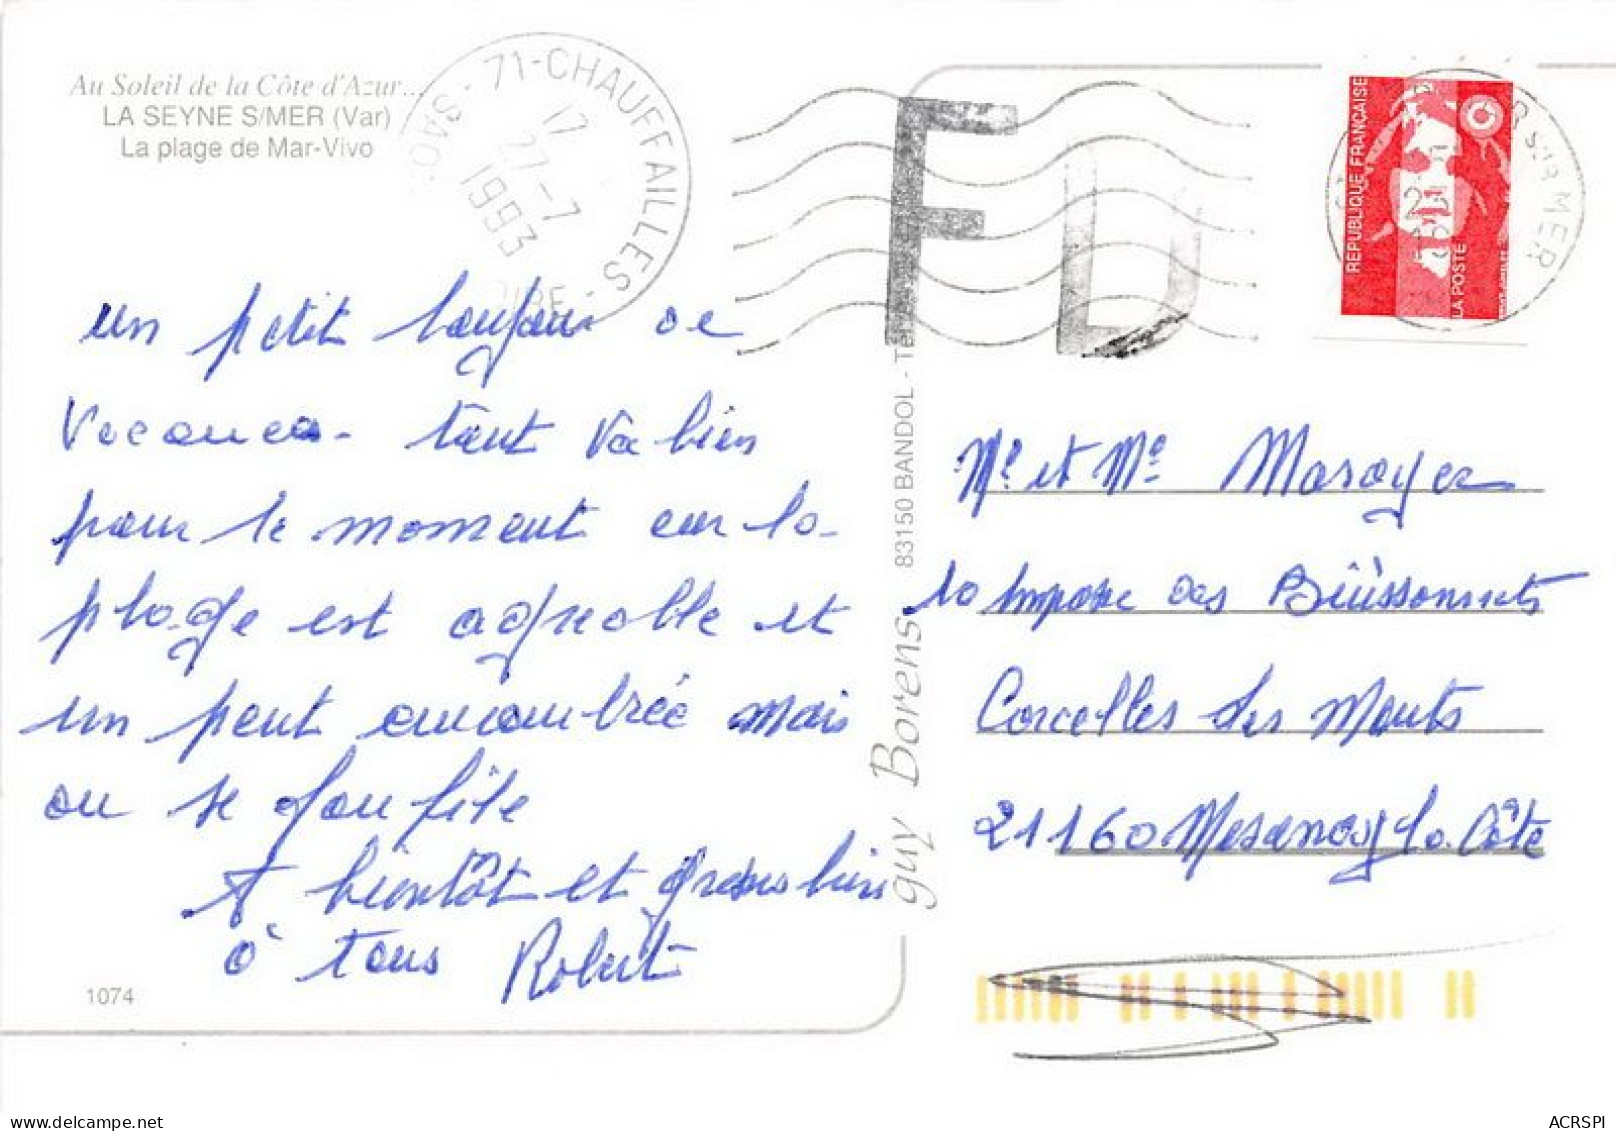 Au Soleil de la Côte d'Azur...
LA SEYNE S/MER (Var)
La plage de Mar-Vivo
71-CHAUFFAILLES
17
27-7
1993
un petit bonjour de
Vacances - tout va bien
pour le moment car la
plage est agréable et
un peut encombrée mais
on se faufile
A bientôt et grosses bises
à tous Robert
1074
guy Borens 83150 BANDOL - Tél.
FD
REPUBLIQUE FRANÇAISE
LA POSTE
S/MER
Mr et Me
10 Impasse des Buissonnets
Corcelles les Monts
21160 la Côte
ACRSPI